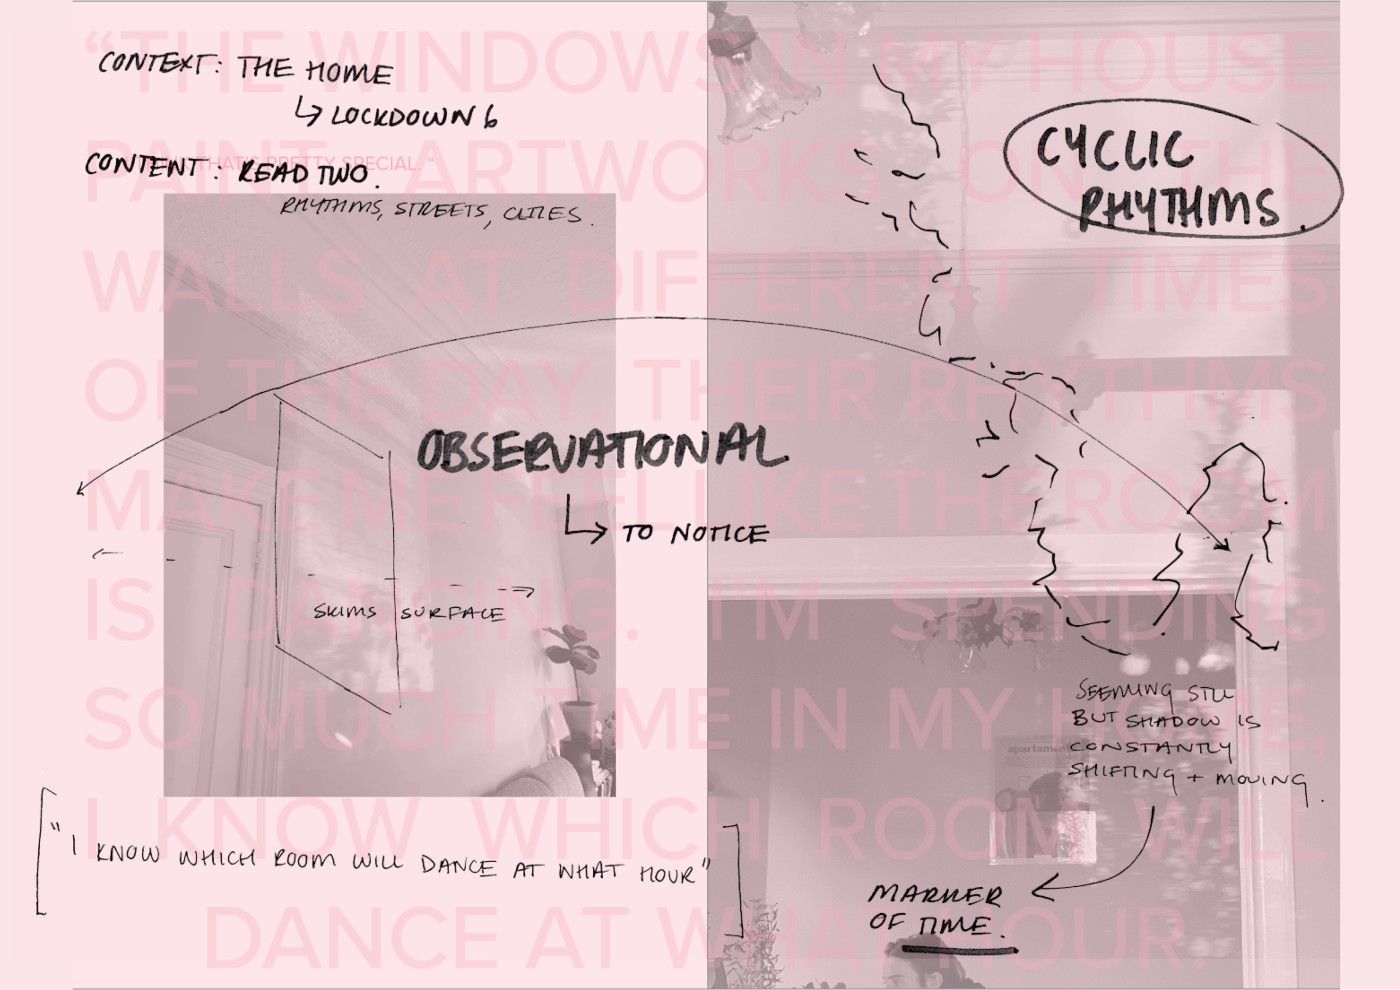 CONTEXT: THE HOME
↳ LOCKDOWN 6
CONTENT: READ TWO.
RHYTHMS, STREETS, CITIES.
THAT'S PRETTY SPECIAL."
CYCLIC
RHYTHMS.
OBSERVATIONAL
↳ TO NOTICE
SKIMS SURFACE
SEEMING STILL
BUT SHADOW IS
CONSTANTLY
SHIFTING + MOVING.
MARKER
OF TIME.
["I KNOW WHICH ROOM WILL DANCE AT WHAT HOUR"]
"THE WINDOWS IN MY HOUSE
PAINT ARTWORKS ON THE
WALLS AT DIFFERENT TIMES
OF THE DAY. THEIR RHYTHMS
MAKE ME FEEL LIKE THE ROOM
IS DANCING. I'M SPENDING
SO MUCH TIME IN MY HOME,
I KNOW WHICH ROOM WILL
DANCE AT WHAT HOUR.